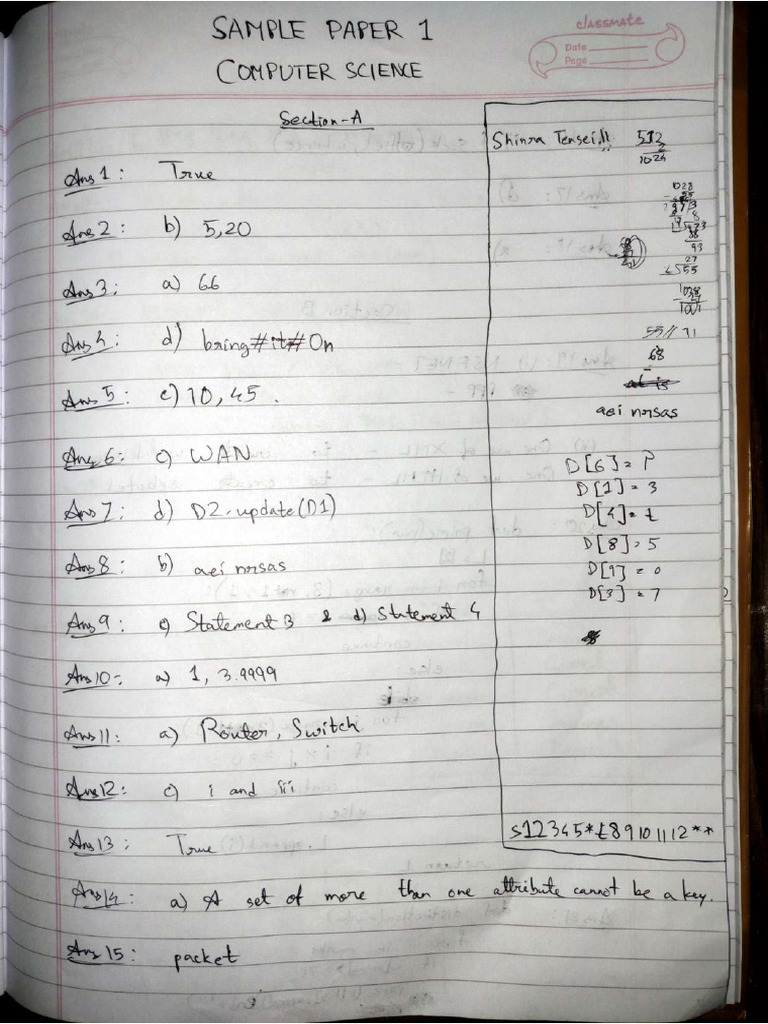 SAMPLE PAPER 1
COMPUTER SCIENCE
classmate
Date
Page
Section-A
Ans 1: True
Ans 2: b) 5,20
Ans 3: a) 66
Ans 4: d) bring#it#On
Ans 5: c) 10, 45.
Ans 6: c) WAN
Ans 7: d) D2.update(D1)
Ans 8: b) aei nrsas
Ans 9: c) Statement 3 & d) Statement 4
Ans 10: a) 1, 3.9999
Ans 11: a) Router, Switch
Ans 12: c) i and iii
Ans 13: True
Ans 14: a) A set of more than one attribute cannot be a key.
Ans 15: packet
Shinra Tensei!!
512
2
1024
1028
27
55
55//71
68
aei nrsas
D[6] = P
D[1] = 3
D[4] = t
D[8] = 5
D[9] = 0
D[3] = 7
s12345*t89101112**